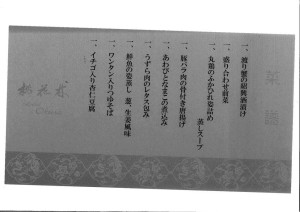 一、渡り蟹の紹興酒漬け
一、盛り合わせ前菜
一、丸鶏のふかひれ姿詰め
蒸しスープ
一、豚バラ肉の骨付き唐揚げ
一、あわびとなまこの煮込み
一、うずら肉のレタス包み
一、鮮魚の姿蒸し 葱、生姜風味
一、ワンタン入りつゆそば
一、イチゴ入り杏仁豆腐